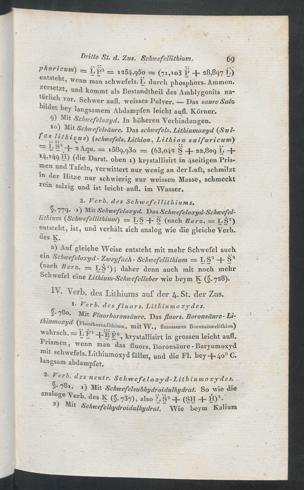 Dritte St. d. Zus. Schwefellithium. 69
phoricum) = = 1284,980 = (71,103 + 28,897
entsteht, wenn man schwefels. L durch phosphors. Ammon.
zersetzt, und kommt als Bestandtheil des Amblygonits na-
türlich vor. Schwer aufl. weisses Pulver. — Das saure Salz
bildet bey langsamem Abdampfen leicht aufl. Körner.
9) Mit Schwefeloxyd. In höheren Verbindungen.
10) Mit Schwefelsäure. Das schwefels. Lithiumoxyd (Sul-
fas lithicus) (schwefels. Lithion, Lithion sulfuricum)
+ 2 Aqu. = 1589,980 = (63,042 + 22,809 +
14,149 (die Darst. oben 1) krystallisirt in 4seitigen Pris-
men und Tafeln, verwittert nur wenig an der Luft, schmilzt
in der Hitze nur schwierig zur weissen Masse, schmeckt
rein salzig und ist leicht aufl. im Wasser.
2. Verb. des Schwefellithiums.
§. 779. 1) Mit Schwefeloxyd. Das Schwefeloxyd-Schwefel-
lithium (Schwefellithium) = LS + S (nach Berz. =
entsteht, ist, und verhält sich analog wie die gleiche Verb.
des K.
2) Auf gleiche Weise entsteht mit mehr Schwefel auch
ein Schwefeloxyd-Zweyfach-Schwefellithium =
(nach Berz. = daher denn auch mit noch mehr
Schwefel eine Lithium-Schwefelleber wie beym K (§. 728).
IV. Verb. des Lithiums auf der 4. St. der Zus.
1. Verb. des fluors. Lithiumoxydes.
§. 780. Mit Fluorboronsäure. Das fluors. Boronsäure-Li-
thiumoxyd (Fluorboronlithium, mit W.,
wahrsch. krystallisirt in grossen leicht aufl.
Prismen, wenn man das fluors. Boronsäure-Baryumoxyd
mit schwefels. Lithiumoxyd fället, und die Fl. bey +40° C.
langsam abdampfet.
2. Verb. des neutr. Schwefeloxyd-Lithiumoxydes.
§. 781. 1) Mit Schwefelsubhydroidulhydrat. So wie die
analoge Verb. des K (§. 737), also
2) Mit Schwefelhydroidulhydrat. Wie beym Kalium